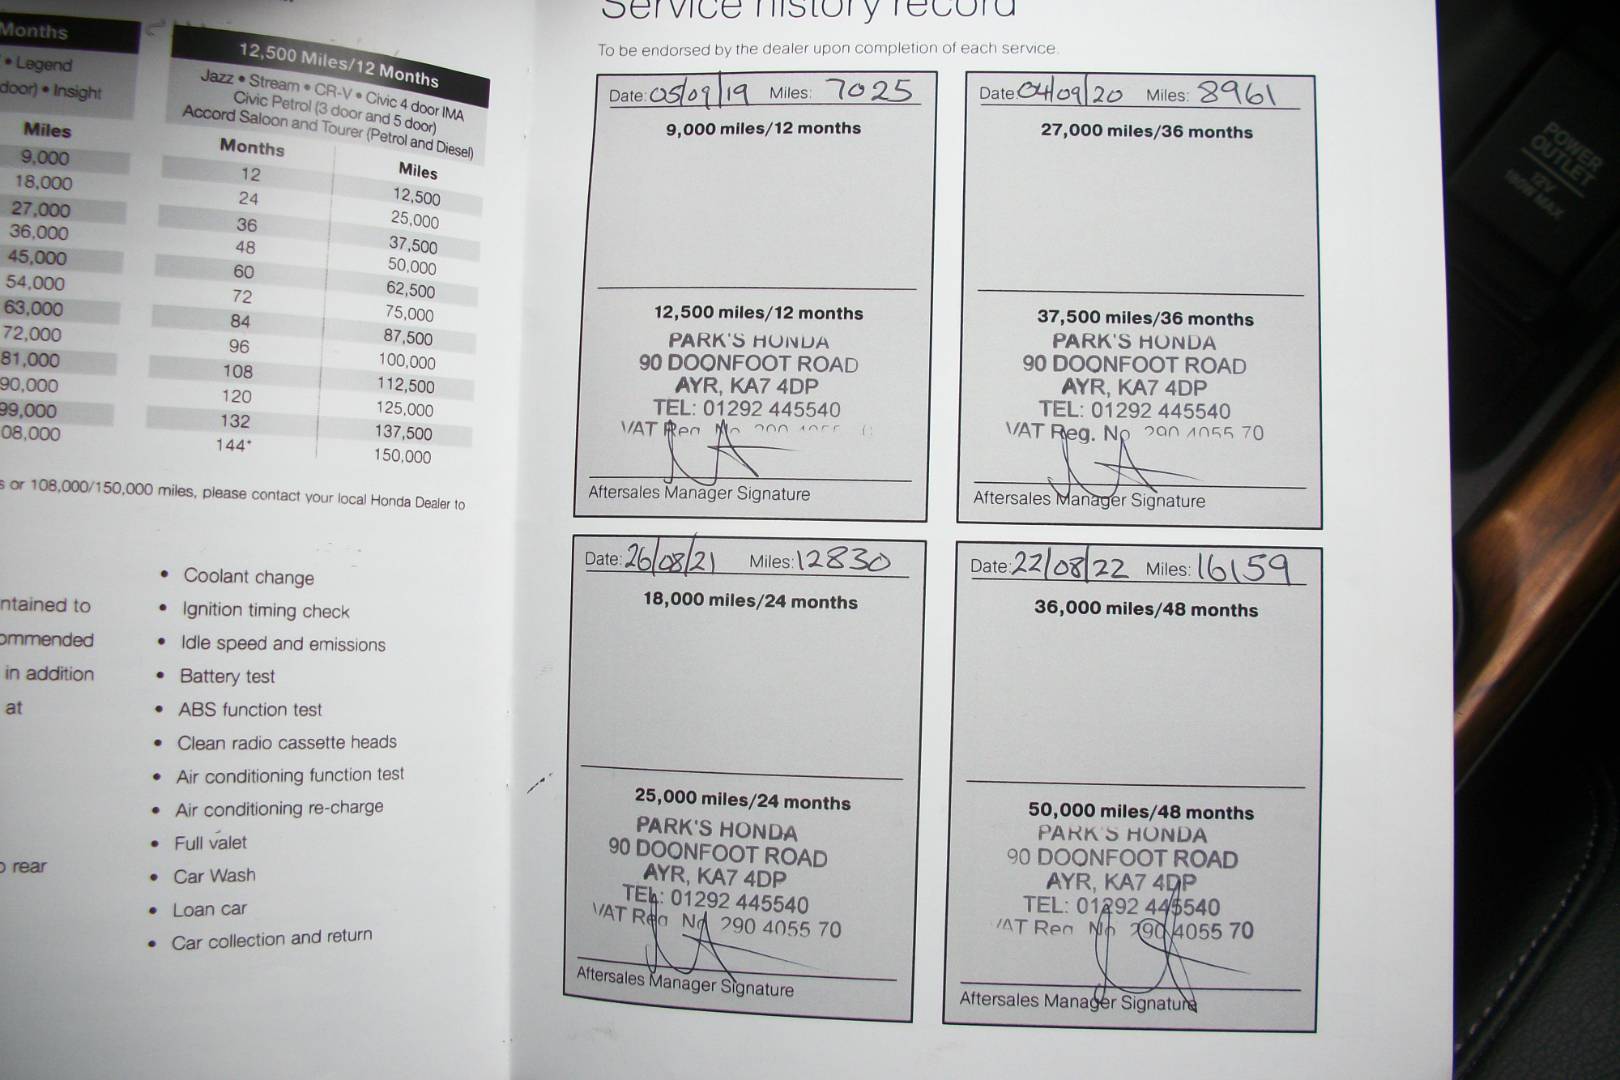 Months
• Legend
door) • Insight
Miles
9,000
18,000
27,000
36,000
45,000
54,000
63,000
72,000
81,000
90,000
99,000
08,000
12,500 Miles/12 Months
Jazz • Stream • CR-V • Civic 4 door IMA
Civic Petrol (3 door and 5 door)
Accord Saloon and Tourer (Petrol and Diesel)
Months Miles
12 12,500
24 25,000
36 37,500
48 50,000
60 62,500
72 75,000
84 87,500
96 100,000
108 112,500
120 125,000
132 137,500
144* 150,000
s or 108,000/150,000 miles, please contact your local Honda Dealer to
ntained to
ommended
in addition
at
rear
• Coolant change
• Ignition timing check
• Idle speed and emissions
• Battery test
• ABS function test
• Clean radio cassette heads
• Air conditioning function test
• Air conditioning re-charge
• Full valet
• Car Wash
• Loan car
• Car collection and return
Service history record
To be endorsed by the dealer upon completion of each service.
Date: 05/09/19 Miles: 7025
9,000 miles/12 months
12,500 miles/12 months
PARK'S HONDA
90 DOONFOOT ROAD
AYR, KA7 4DP
TEL: 01292 445540
VAT Reg. No
Aftersales Manager Signature
Date: 04/09/20 Miles: 8961
27,000 miles/36 months
37,500 miles/36 months
PARK'S HONDA
90 DOONFOOT ROAD
AYR, KA7 4DP
TEL: 01292 445540
VAT Reg. No 290 4055 70
Aftersales Manager Signature
Date: 26/08/21 Miles: 12830
18,000 miles/24 months
25,000 miles/24 months
PARK'S HONDA
90 DOONFOOT ROAD
AYR, KA7 4DP
TEL: 01292 445540
VAT Reg No 290 4055 70
Aftersales Manager Signature
Date: 22/08/22 Miles: 16159
36,000 miles/48 months
50,000 miles/48 months
PARK'S HONDA
90 DOONFOOT ROAD
AYR, KA7 4DP
TEL: 01292 445540
VAT Reg No 290 4055 70
Aftersales Manager Signature
POWER
OUTLET
12V
180W MAX